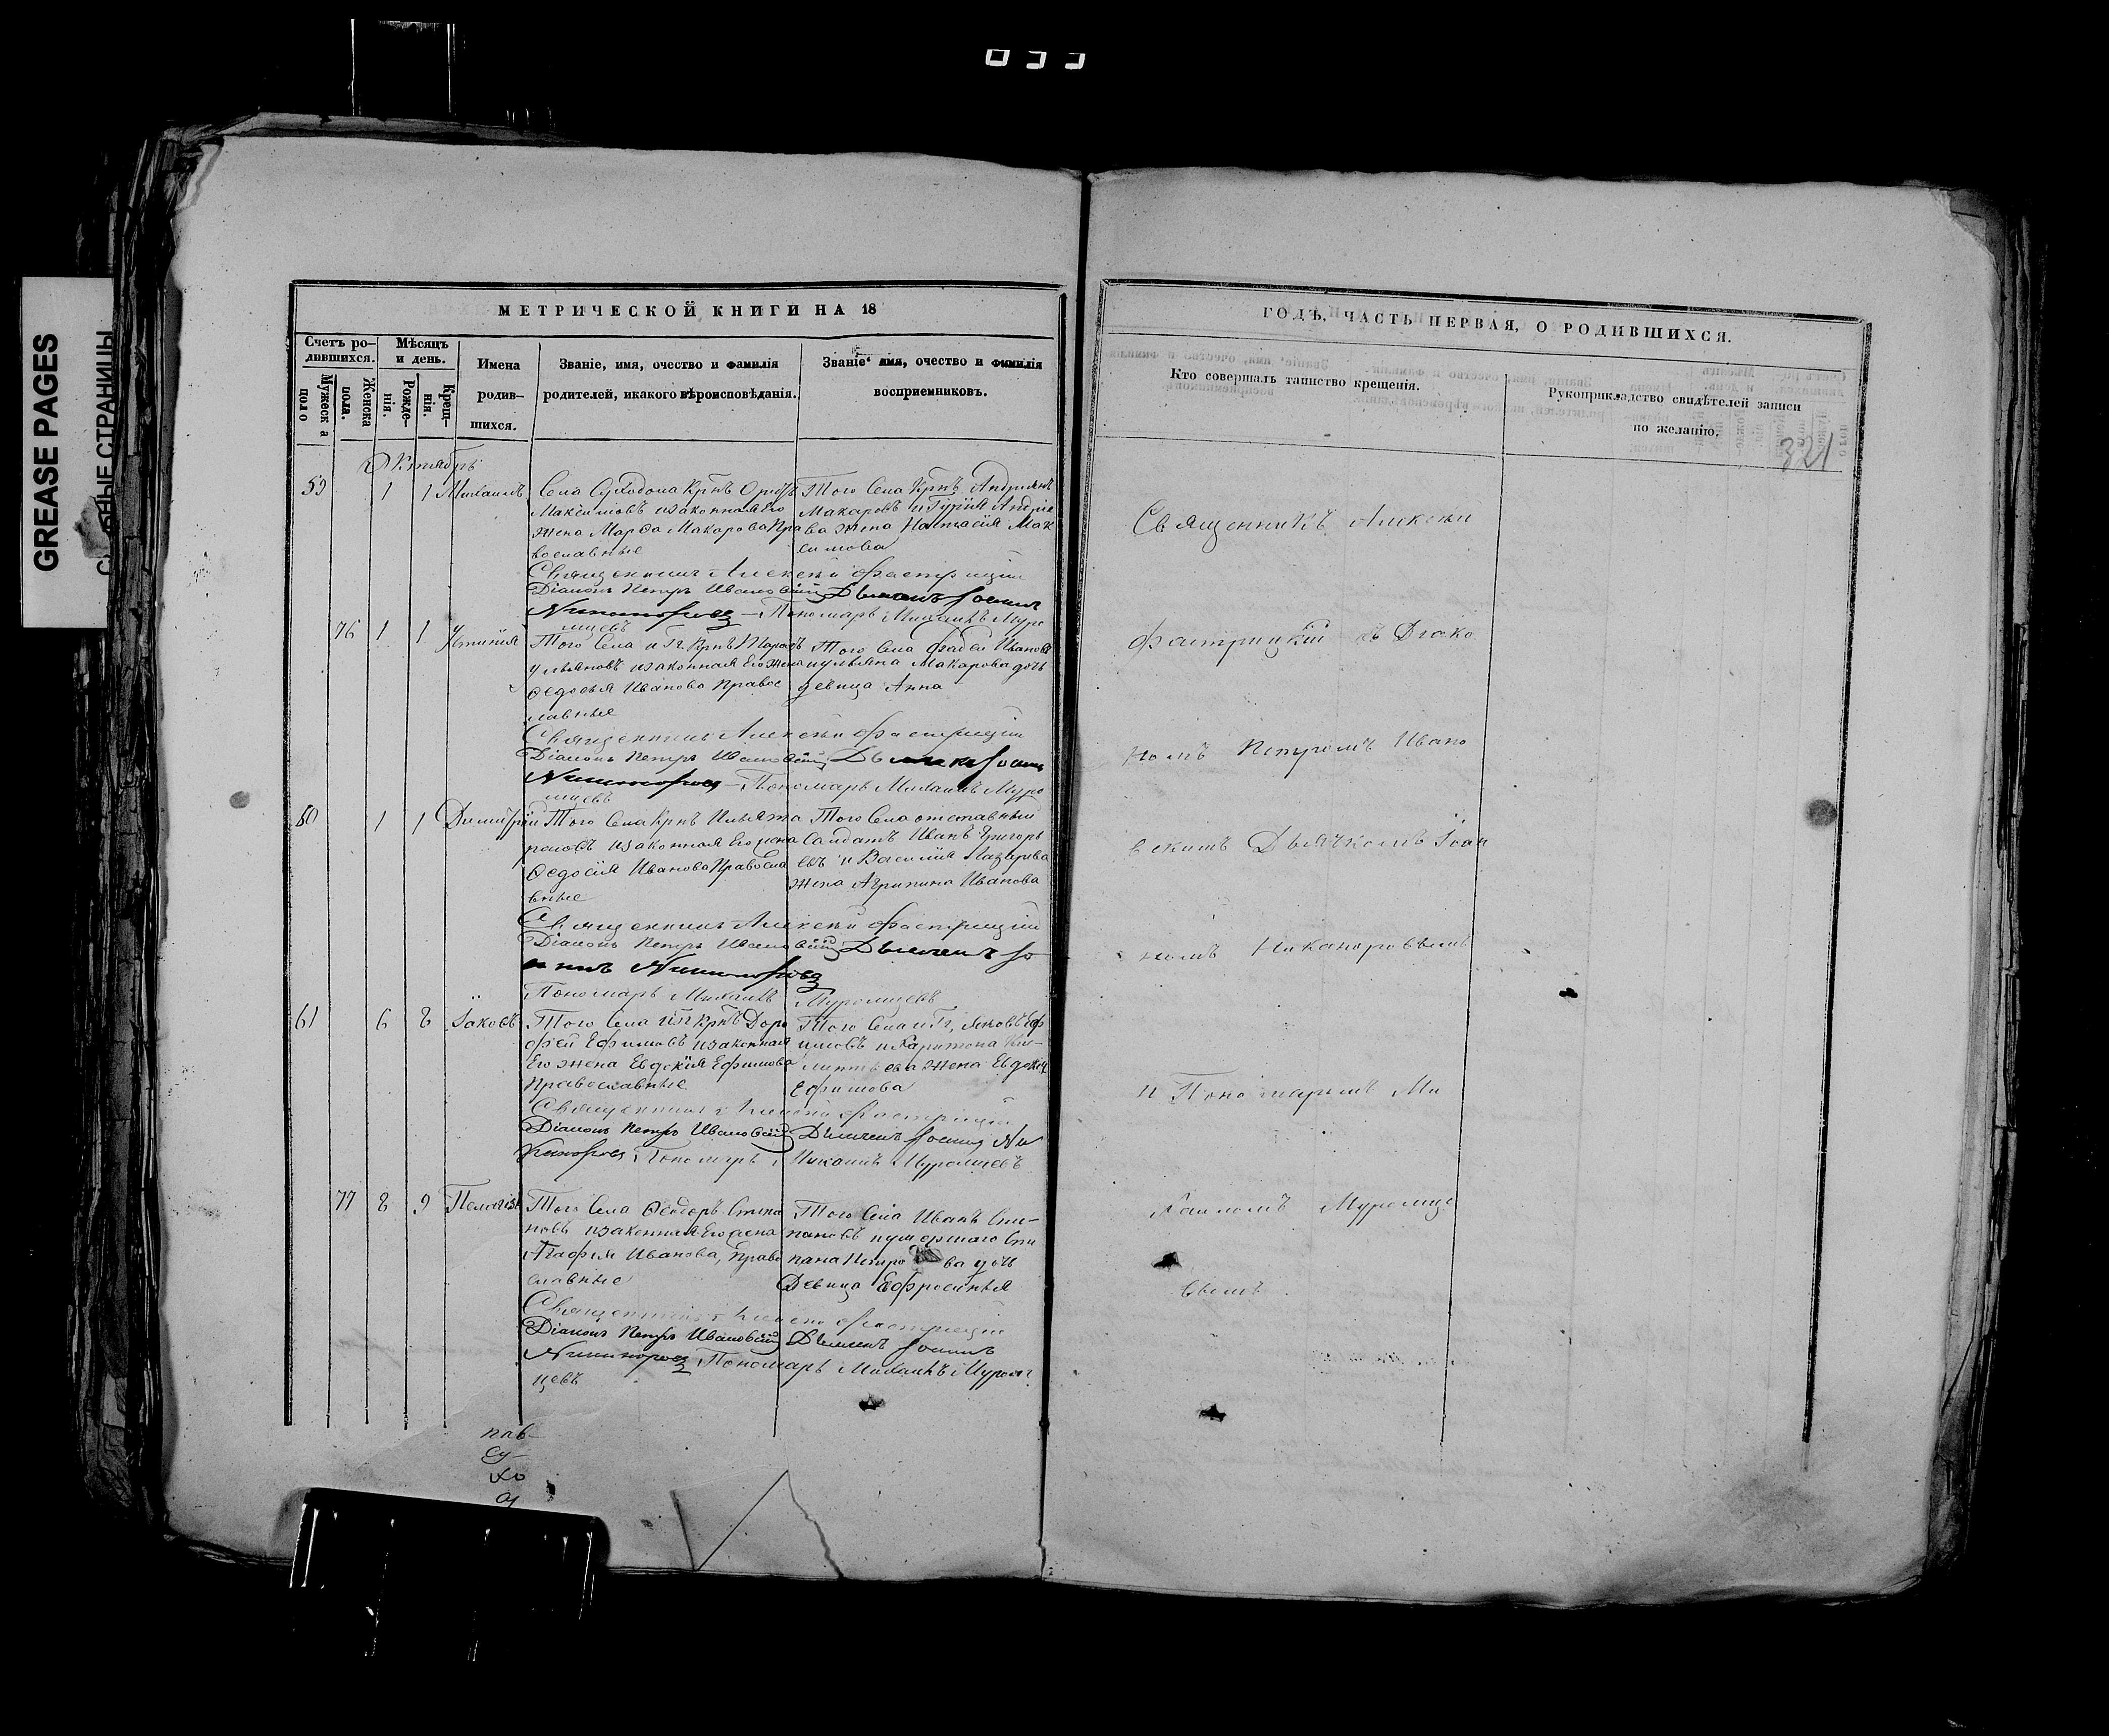 GREASE PAGES
НЫЕ СТРАНИЦЫ
МЕТРИЧЕСКОЙ КНИГИ НА 18
Счетъ ро-
дившихся.
Мужеск а
поло
Женска
пола.
Мѣсяцъ
и день.
Рожде-
нія.
Крещ-
нія.
Имена
родив-
шихся.
Званіе, имя, очество и фамилія
родителей, икакого вѣроисповѣданія.
Званіе имя, очество и фамилія
восприемниковъ.
Октябрь
59 1 1 Михаилъ
Села Суходола Крнъ
Максимовъ изаконная Его
жена Марѳа Макарова Пра
вославные
Того Села Крнъ Андріянъ
Макаровъ и Гурія Андрее
ва жена Настасія Мак
симова
Священникъ Алексѣй Фастрицкій
Діаконъ Петръ Ивановскій Дьячекъ Іоаннъ
Никаноровъ Пономарь Михаилъ Муро
мцевъ
76 1 1 Устинія
Того Села и Гг. Крнъ
Ульяновъ изаконная Его жена
Ѳедосья Иванова Правос
лавные
Того Села Фадей Ивановъ
иульяна Макарова дочь
девица Анна
Священникъ Алексѣй Фастрицкій
Діаконъ Петръ Ивановскій Дьячекъ Іоаннъ
Никаноровъ Пономарь Михаилъ Муро
мцевъ
60 1 1 Димитрій
Того Села Крнъ Илья
изаконная Его жена
Ѳедосія Иванова Правосла
вные
Того Села отставный
Салдатъ Иванъ Григорь
евъ и Василия Лазарева
жена Агрипина Иванова
Священникъ Алексѣй Фастрицкій
Діаконъ Петръ Ивановскій Дьячекъ Іо
аннъ Никаноровъ
Пономарь Михаилъ Муромцевъ
61 6 8 Іаковъ
Того Села и Гг Крнъ Доро
фей Ефимовъ изаконная
Его жена Евдокія Ефимова
Православные
Того Села и Гг, Яковъ Еф
имовъ и Харитона Кли-
ментьева жена Евдокія
Ефимова
Священникъ Алексѣй Фастрицкій
Діаконъ Петръ Ивановскій Дьячекъ Іоаннъ Ни
каноровъ Пономарь Михаилъ Муромцевъ
77 8 9 Пелагія
Того Села Ѳеодоръ Степа
новъ изаконная Его жена
Агафія Иванова, Право
славные
Того Села Иванъ Сте-
пановъ иумершаго Сте
пана Петрова дочь
Девица Ефросинья
Священникъ Алексѣй Фастрицкій
Діаконъ Петръ Ивановскій Дьячекъ Іоаннъ
Никаноровъ Пономарь Михаилъ Муром
цевъ
Су-
хо
ГОДѢ, ЧАСТЬ ПЕРВАЯ, О РОДИВШИХСЯ.
Кто совершалъ таинство крещенія.
Рукоприкладство свидѣтелей записи
по желанію.
321
Священникъ Алексѣй
Фастрицкій съ Діако
номъ Петромъ Ивано
вскимъ Дьячкомъ Іоан
номъ Никаноровымъ
и Пономаремъ Ми
хаиломъ Муромце
вымъ